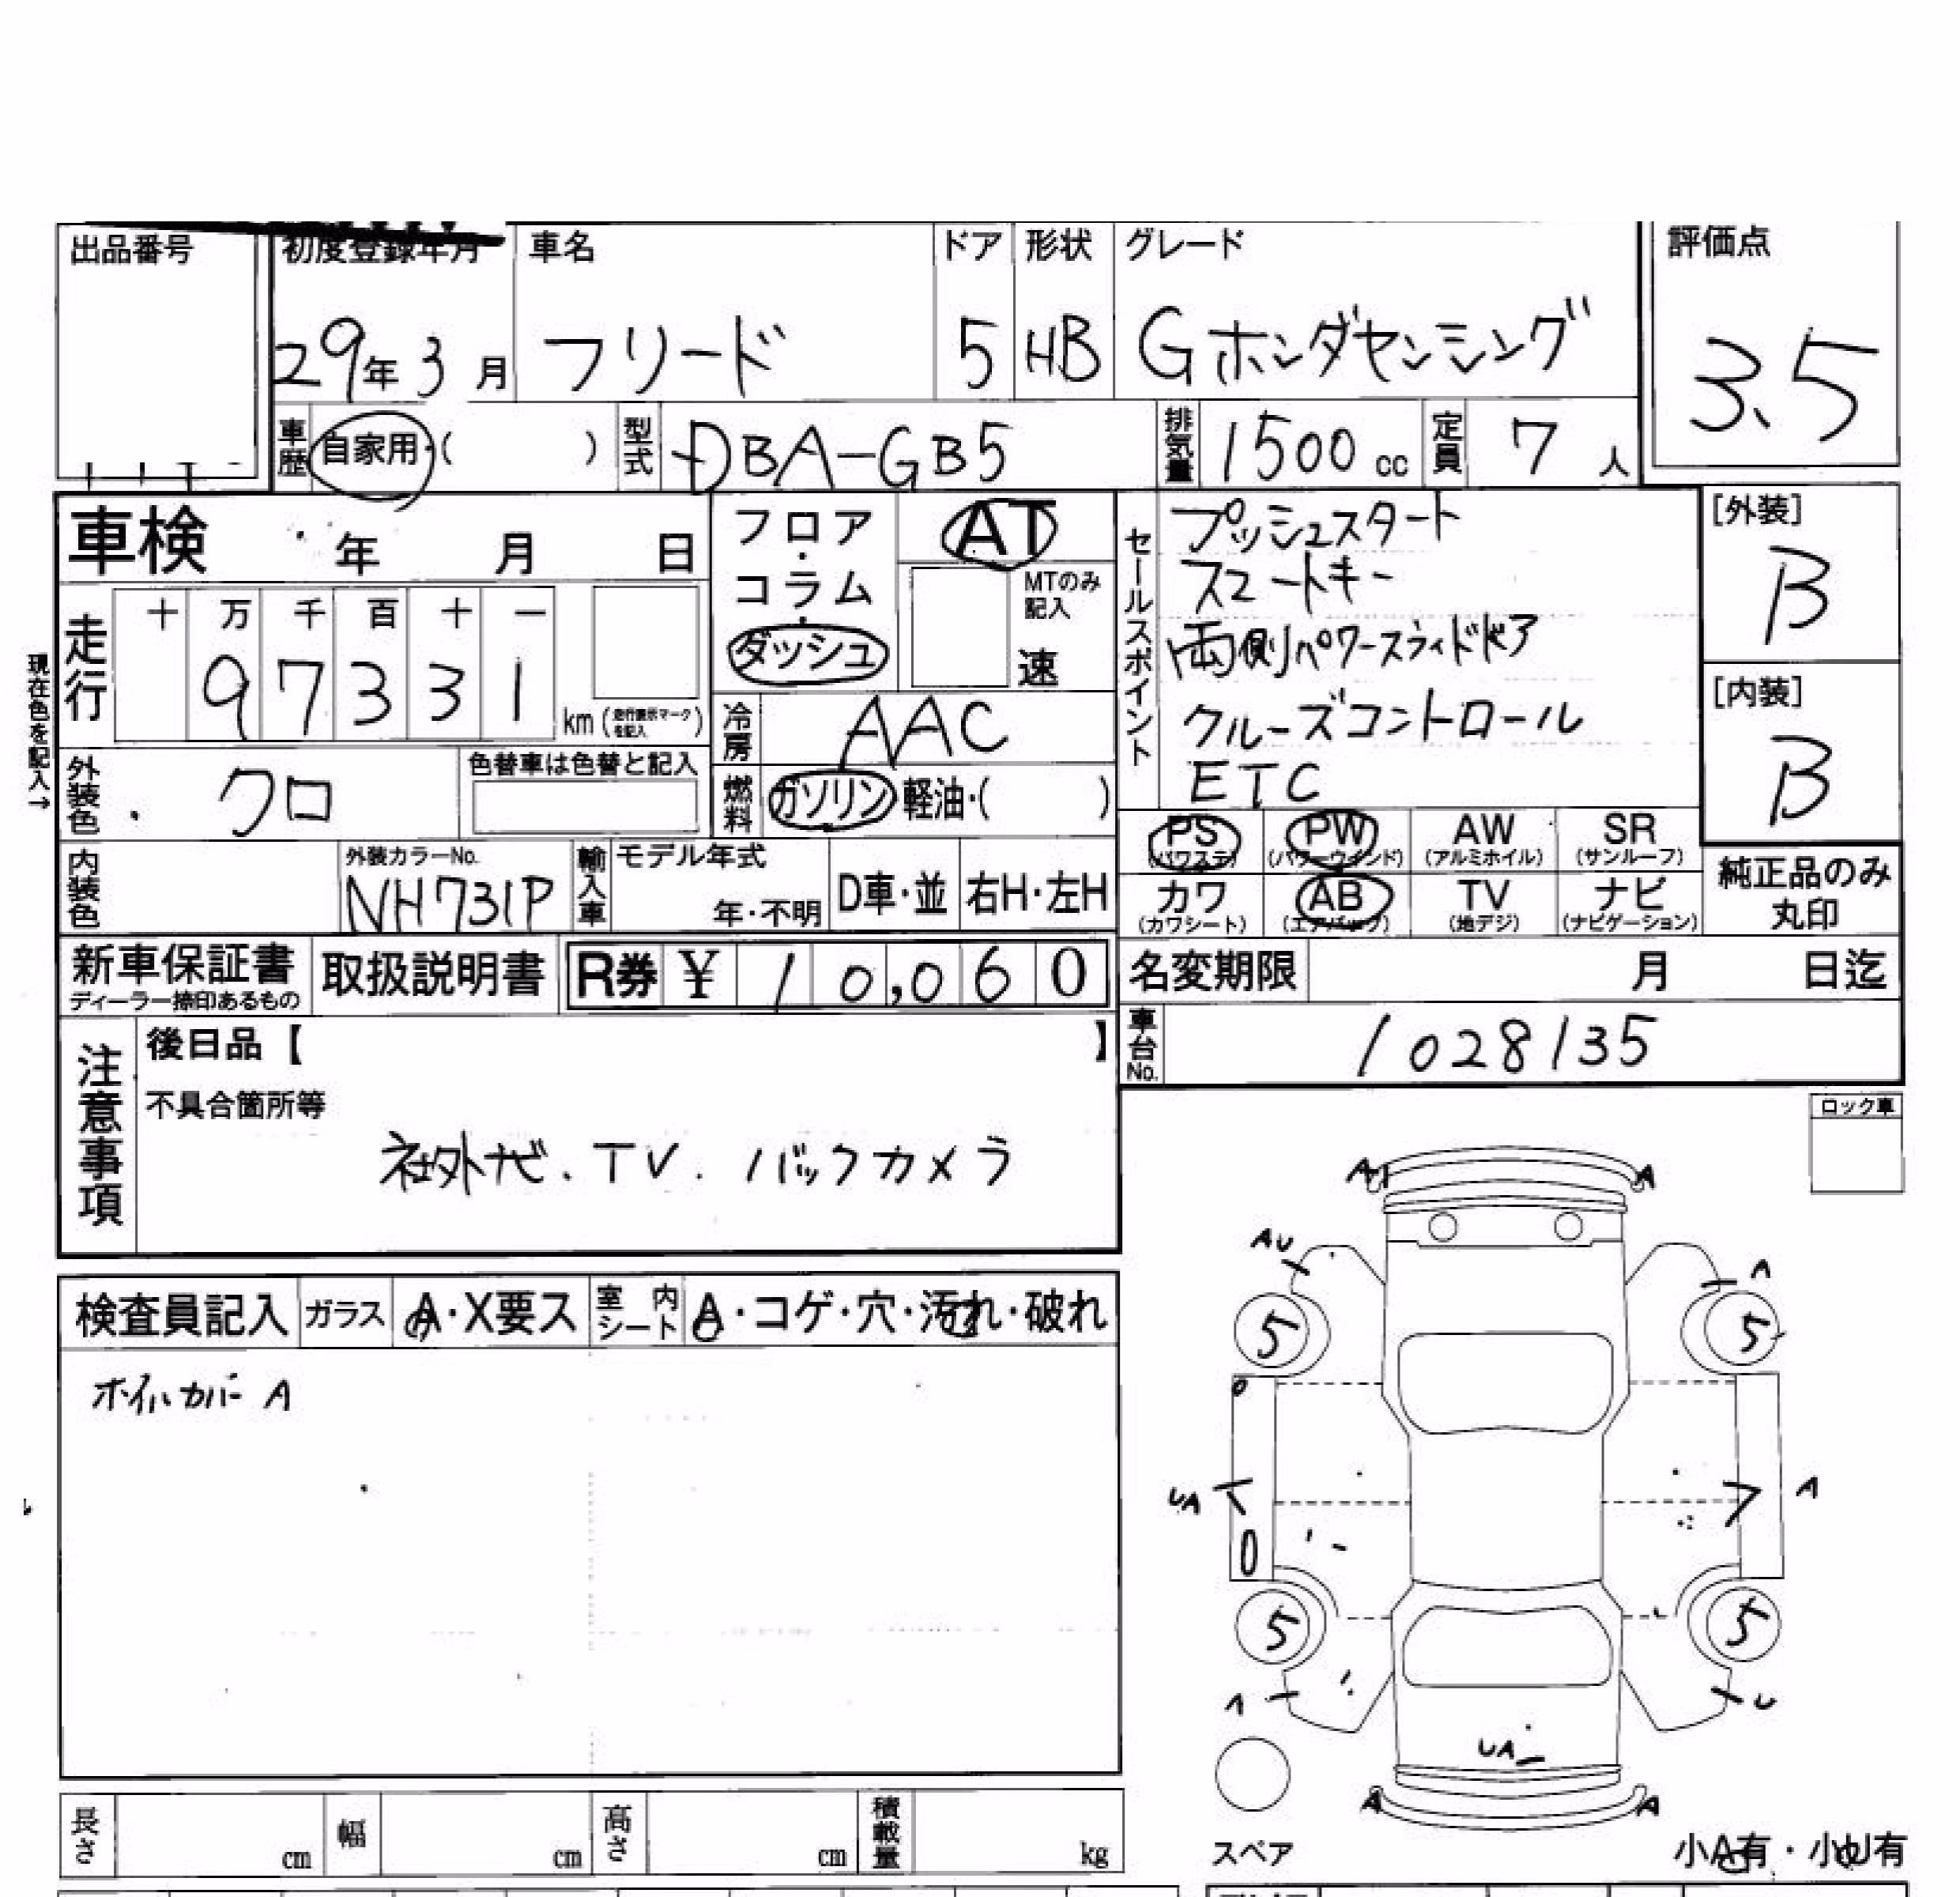 出品番号
初度登録年月 車名 ドア 形状 グレード 評価点
29年3月 フリード 5 HB Gホンダセンシング 3.5
車歴 自家用・( ) 型式 DBA-GB5 排気量 1500cc 定員 7人
車検 年 月 日
フロア・コラム・ダッシュ
AT
MTのみ記入
速
セールスポイント
プッシュスタート
スマートキー
両側パワースライドドア
クルーズコントロール
ETC
[外装]
B
[内装]
B
現在色を記入→
走行 十 万 千 百 十 一
97331 km (走行表示マークを記入)
冷房 AAC
燃料 ガソリン・軽油・( )
外装色 クロ 色替車は色替と記入
内装色 外装カラーNo. NH731P 輸入車 モデル年式 年・不明 D車・並 右H・左H
PS (パワステ) PW (パワーウインド) AW (アルミホイル) SR (サンルーフ)
カワ (カワシート) AB (エアバック) TV (地デジ) ナビ (ナビゲーション)
純正品のみ
丸印
新車保証書 取扱説明書 R券 ¥ 10,060 名変期限 月 日迄
ディーラー捺印あるもの
車台No. 1028135
注意事項
後日品【 】
不具合箇所等
社外ナビ、TV、バックカメラ
ロック車
検査員記入 ガラス A・X要ス 室内シート A・コゲ・穴・汚れ・破れ
ホイルカバー A
A A
AU A
5 5
UA A
5 5
A U
UA
A A
スペア
小A有・小U有
長さ cm 幅 cm 高さ cm 積載量 kg